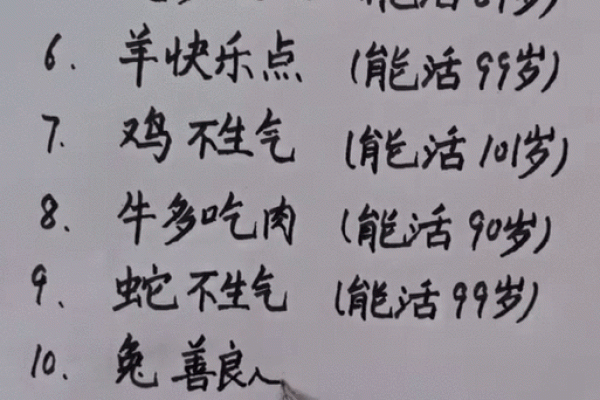 多 (能活81岁)
6. 羊快乐点 (能活99岁)
7. 鸡不生气 (能活101岁)
8. 牛多吃肉 (能活90岁)
9. 蛇不生气 (能活99岁)
10. 兔善良